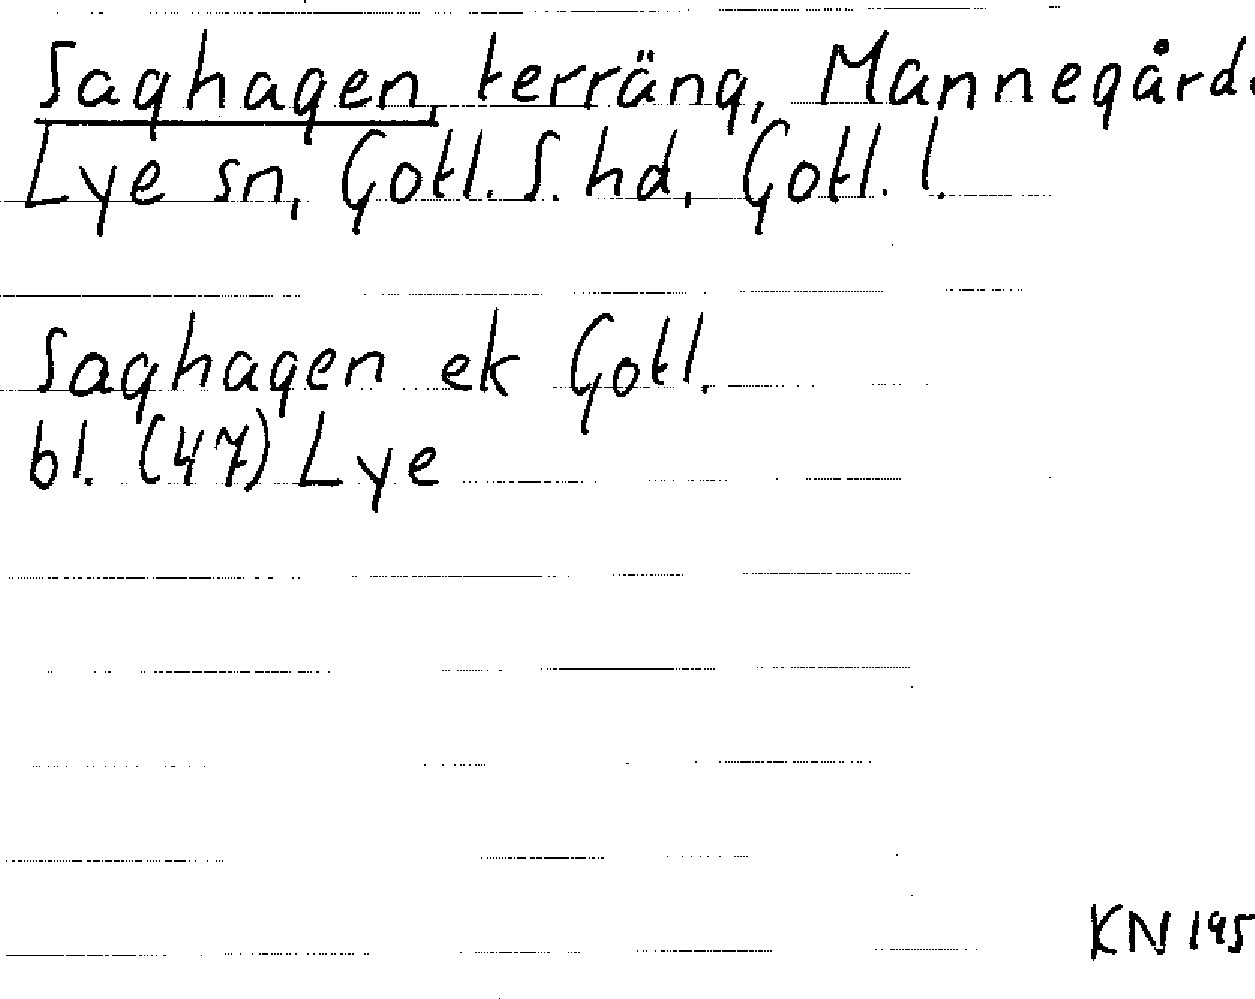 Saghagen, terräng, Mannegårda
Lye sn, Gotl. S. hd, Gotl. l.
Saghagen ek Gotl.
bl. (47) Lye
KN 195